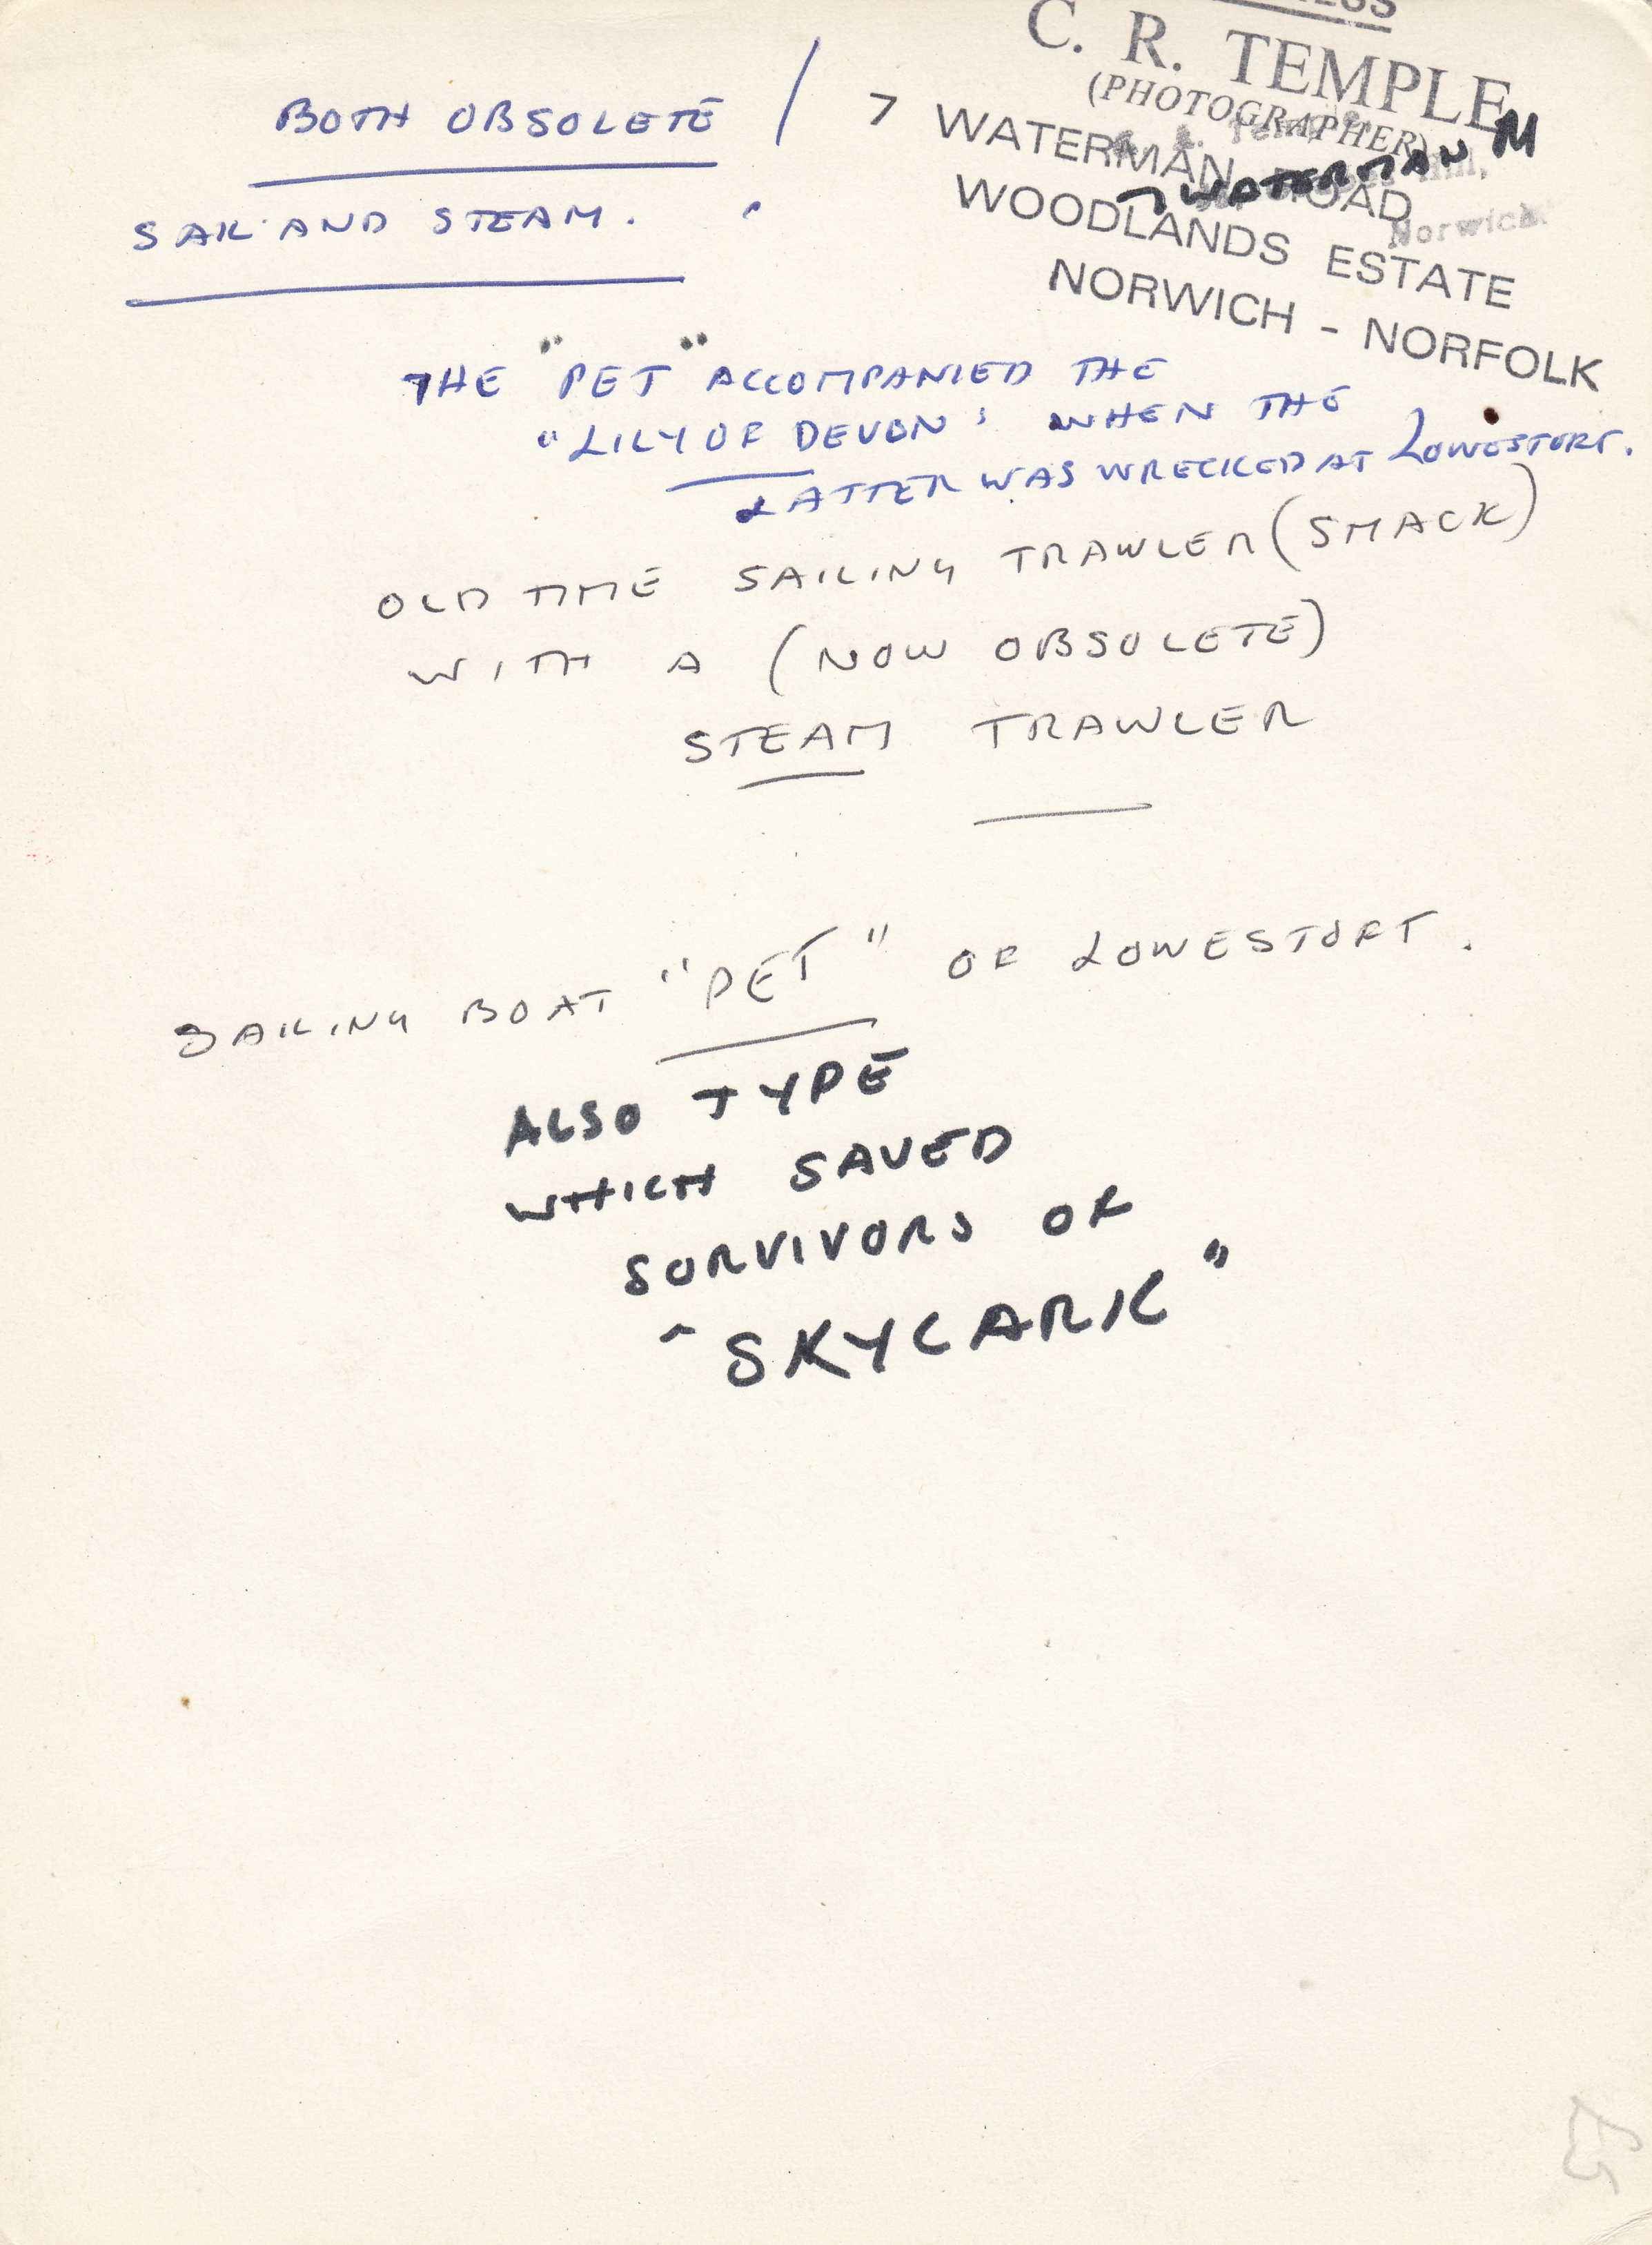 C. R. TEMPLE
(PHOTOGRAPHER)
7 WATERMAN ROAD
WOODLANDS ESTATE
NORWICH - NORFOLK
7 WATERMAN
Norwich.
BOTH OBSOLETE /
SAIL AND STEAM.
THE "PET" ACCOMPANIED THE
"LILY OF DEVON" WHEN THE
LATTER WAS WRECKED AT LOWESTOFT.
OLD TIME SAILING TRAWLER (SMACK)
WITH A (NOW OBSOLETE)
STEAM TRAWLER
SAILING BOAT "PET" OF LOWESTOFT.
ALSO TYPE
WHICH SAVED
SURVIVORS OF
"SKYLARK"